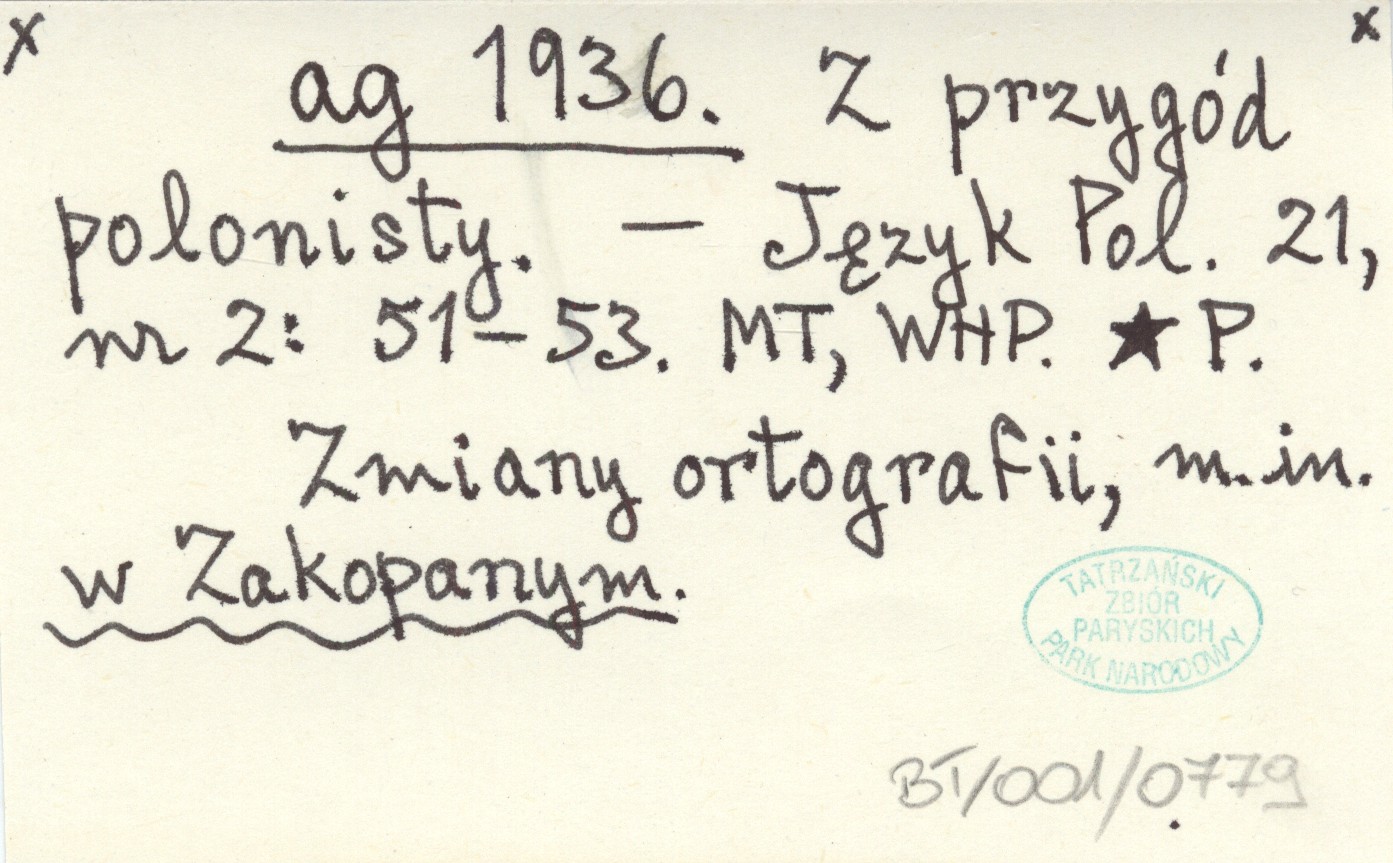 x x
ag 1936. Z przygód
polonisty. — Język Pol. 21,
nr 2: 51–53. MT, WHP. ★ P.
Zmiany ortografii, m.in.
w Zakopanym.
TATRZAŃSKI
ZBIÓR
PARYSKICH
PARK NARODOWY
BT/001/0779